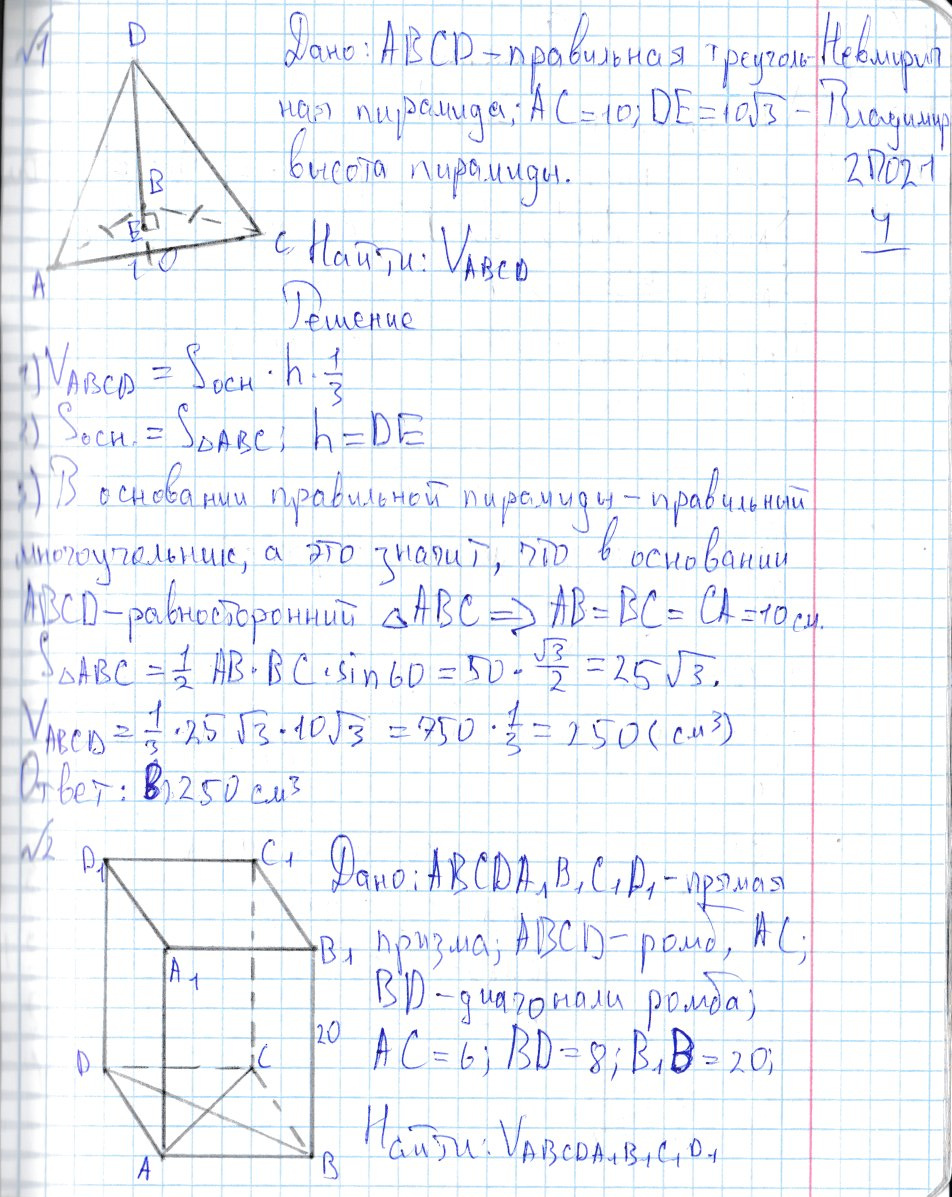 №1
D
Дано: ABCD – правильная треуголь-
ная пирамида; AC = 10; DE = 10√3 –
высота пирамиды.
Владимир
2П021
4
B
E
A
10
C
Найти: V ABCD
Решение
1) V ABCD = Sосн · h · 1/3
2) Sосн. = S△ABC; h = DE
3) В основании правильной пирамиды – правильный
многоугольник, а это значит, что в основании
ABCD – равносторонний △ABC => AB = BC = CA = 10 см.
S△ABC = 1/2 AB · BC · sin60 = 50 · √3/2 = 25√3.
V ABCD = 1/3 · 25√3 · 10√3 = 750 · 1/3 = 250 (см³)
Ответ: В) 250 см³
№2
D1
C1
A1
B1
20
D
C
A
B
Дано: ABCDA1B1C1D1 – прямая
призма; ABCD – ромб, AC;
BD – диагонали ромба;
AC = 6; BD = 8; B1B = 20;
Найти: V ABCDA1B1C1D1